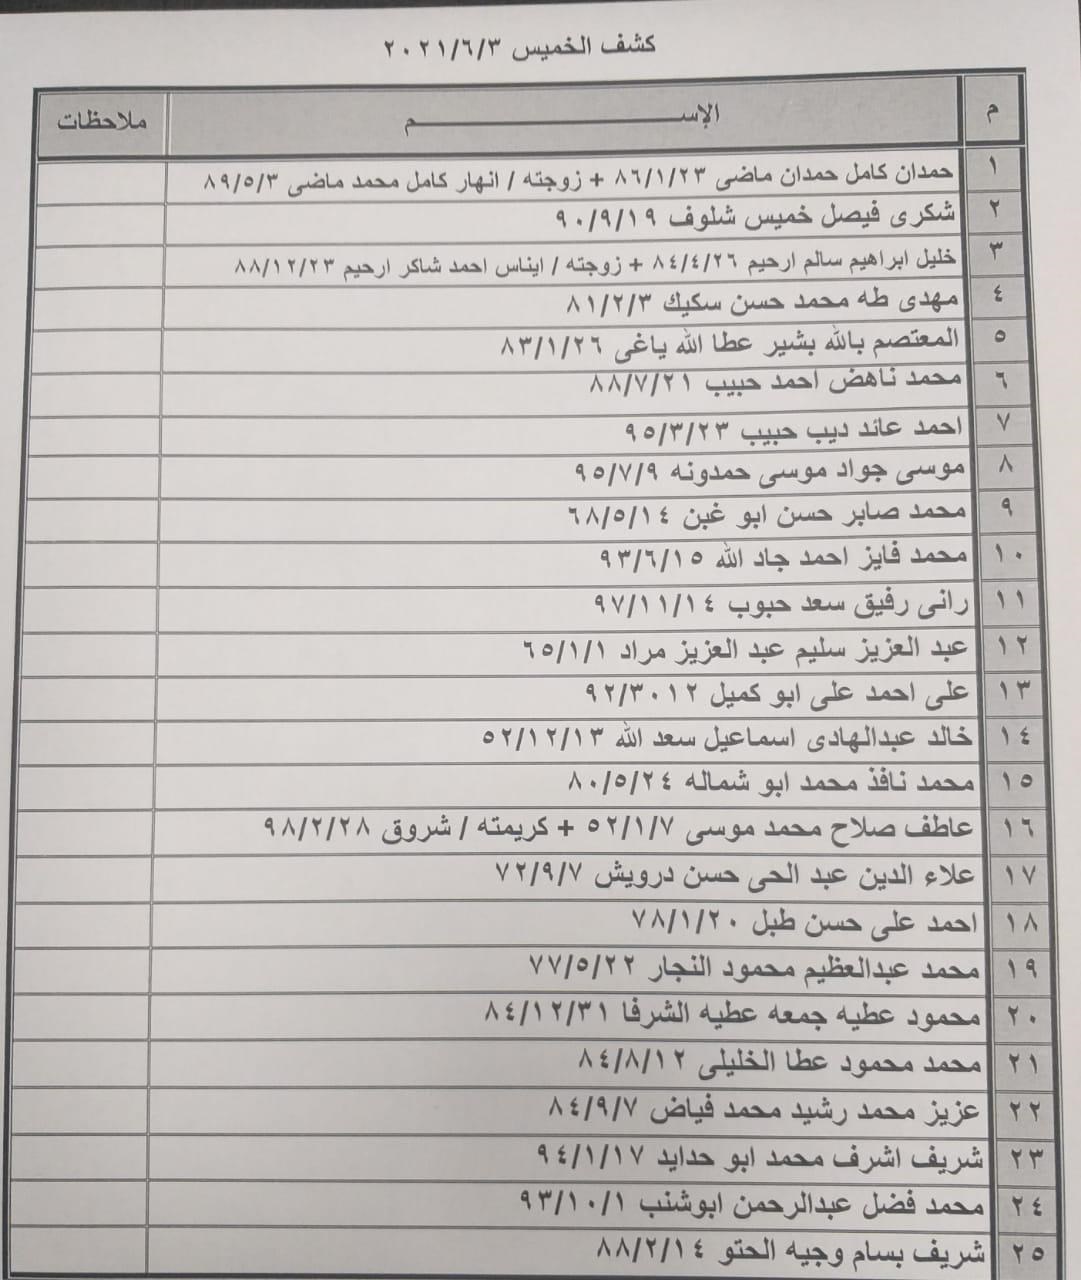 كشف الخميس ٢٠٢١/٦/٣
م الإســـــــم ملاحظات
١ حمدان كامل حمدان ماضى ٨٦/١/٢٣ + زوجته / انهار كامل محمد ماضى ٨٩/٥/٣
٢ شكرى فيصل خميس شلوف ٩٠/٩/١٩
٣ خليل ابراهيم سالم ارحيم ٨٤/٤/٢٦ + زوجته / ايناس احمد شاكر ارحيم ٨٨/١٢/٢٣
٤ مهدى طه محمد حسن سكيك ٨١/٢/٣
٥ المعتصم بالله بشير عطا الله ياغى ٨٣/١/٢٦
٦ محمد ناهض احمد حبيب ٨٨/٧/٢١
٧ احمد عائد ديب حبيب ٩٥/٣/٢٣
٨ موسى جواد موسى حمدونه ٩٥/٧/٩
٩ محمد صابر حسن ابو غبن ٦٨/٥/١٤
١٠ محمد فايز احمد جاد الله ٩٣/٦/١٥
١١ رانى رفيق سعد حبوب ٩٧/١١/١٤
١٢ عبد العزيز سليم عبد العزيز مراد ٦٥/١/١
١٣ على احمد على ابو كميل ٩٢/٣٠١٢
١٤ خالد عبدالهادى اسماعيل سعد الله ٥٢/١٢/١٣
١٥ محمد نافذ محمد ابو شماله ٨٠/٥/٢٤
١٦ عاطف صلاح محمد موسى ٥٢/١/٧ + كريمته / شروق ٩٨/٢/٢٨
١٧ علاء الدين عبد الحى حسن درويش ٧٢/٩/٧
١٨ احمد على حسن طبل ٧٨/١/٢٠
١٩ محمد عبدالعظيم محمود النجار ٧٧/٥/٢٢
٢٠ محمود عطيه جمعه عطيه الشرفا ٨٤/١٢/٣١
٢١ محمد محمود عطا الخليلى ٨٤/٨/١٢
٢٢ عزيز محمد رشيد محمد فياض ٨٤/٩/٧
٢٣ شريف اشرف محمد ابو حدايد ٩٤/١/١٧
٢٤ محمد فضل عبدالرحمن ابوشنب ٩٣/١٠/١
٢٥ شريف بسام وجيه الحتو ٨٨/٢/١٤